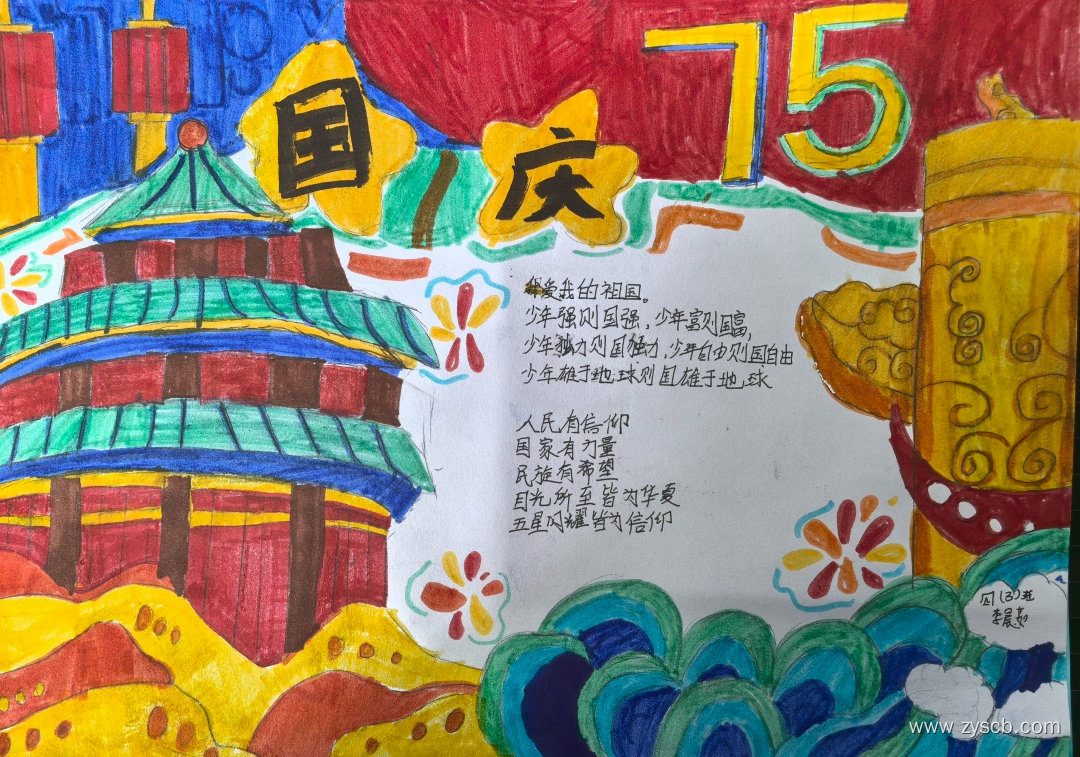 国庆
75
我爱我的祖国。
少年强则国强,少年富则国富,
少年独力则国独力,少年自由则国自由
少年雄于地球则国雄于地球
人民有信仰
国家有力量
民族有希望
目光所至皆为华夏
五星闪耀皆为信仰
四(3)班
www.zyscb.com